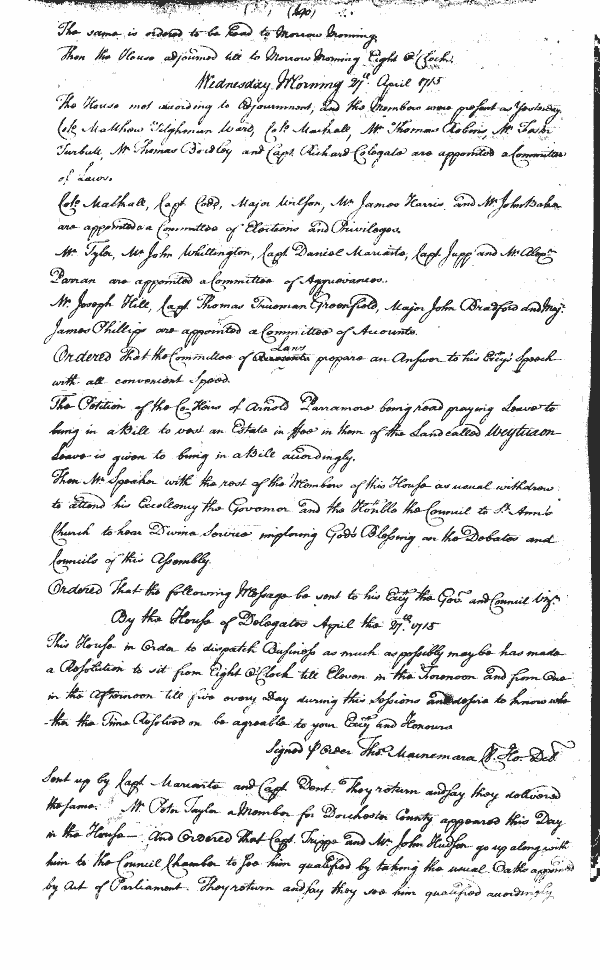 (190)
The same is ordered to be Read to Morrow Morning.
Then the House adjourned till to Morrow Morning Eight O'Clock.
Wednesday Morning 27th April 1715
The House met according to Adjournment, and the Members were present as Yesterday
Colo. Matthew Tilghman Ward, Colo. Mackall, Mr. Thomas Robins, Mr. Foster
Turbutt, Mr. Thomas Bordley and Capt. Richard Colegate are appointed a Committee
of Laws.
Colo. Mackall, Capt. Codd, Major Wilson, Mr. James Harris, and Mr. John Baker
are appointed a Committee of Elections and Privileges.
Mr. Tyler, Mr. John Whittington, Capt. Daniel Mariarte, Capt. Jupp and Mr. Alexr.
Parran are appointed a Committee of Aggrievances.
Mr. Joseph Hill, Capt. Thomas Trueman Greenfield, Major John Bradford and Maj.
James Phillips are appointed a Committee of Accounts.
Laws
Ordered That the Committee of prepare an Answer to his Excys. Speech
with all convenient Speed.
The Petition of the Co Heirs of Arnold Parramore being read praying Leave to
bring in a Bill to vest an Estate in ffee in them of the Land called
Leave is given to bring in a Bill accordingly.
Then Mr. Speaker with the rest of the Members of this House as usual withdrew
to attend his Excellency the Governor and the Honble the Council to St. Ann's
Church to hear Divine Service imploring God's Blessing on the Debates and
Councils of this Assembly.
Ordered That the following Message be sent to his Excy the Govr. and Council Vizt.
By the House of Delegates April the 27th. 1715
This House in Order to dispatch Business as much as possibly may be has made
a Resolution to sit from Eight O'Clock till Eleven in the Forenoon and from One
in the Afternoon till five every Day during this Sessions and desire to know whe
-ther the Time Resolved on be agreable to your Excy and Honours
Signed P Order Thos. Macnemara Cl. Ho. Del.
Sent up by Capt. Mariarte and Capt. Dent. They return and say they delivered
the same. Mr. Peter Taylor a Member for Dorchester County appeared this Day
in the House — And Ordered That Capt. Trippe and Mr. John Hudson go up along with
him to the Council Chamber to see him qualified by taking the usual Oaths appointed
by Act of Parliament. They return and say they see him qualified accordingly